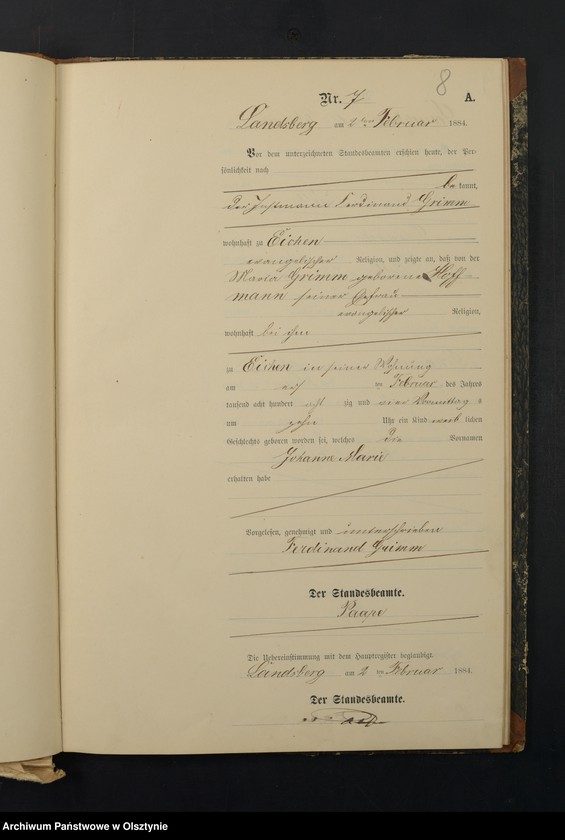 8
Nr. 7 A.
Landsberg am 2ten Februar 1884.
Vor dem unterzeichneten Standesbeamten erschien heute, der Per-
sönlichkeit nach
be kannt,
der Instmann Ferdinand Grimm
wohnhaft zu Eichen
evangelischer Religion, und zeigte an, daß von der
Maria Grimm geborene Hoff-
mann seiner Ehefrau
evangelischer Religion,
wohnhaft bei ihm
zu Eichen in seiner Wohnung
am ten Februar des Jahres
tausend acht hundert acht zig und vier Vormittags
um zehn Uhr ein Kind weib lichen
Geschlechts geboren worden sei, welches die Vornamen
Johanne Marie
erhalten habe
Vorgelesen, genehmigt und unterschrieben
Ferdinand Grimm
Der Standesbeamte.
Die Uebereinstimmung mit dem Hauptregister beglaubigt.
Landsberg am 2 ten Februar 1884.
Der Standesbeamte.
Archiwum Państwowe w Olsztynie